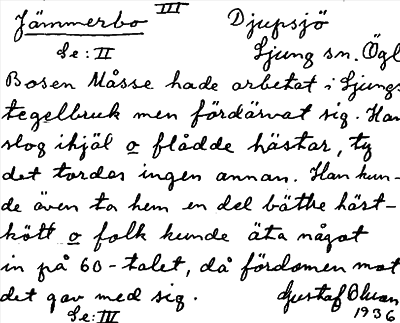 III
Jämmerbo Djupsjö
Se: II Ljung sn. Ögl
Bosen Måsse hade arbetat i Ljungs
tegelbruk men fördärvat sig. Han
slog ihjäl o flådde hästar, ty
det tordes ingen annan. Han kun-
de även ta hem en del bättre häst-
kött o folk kunde äta något
in på 60-talet, då fördomen mot
det gav med sig. Gustaf
Se: III 1936